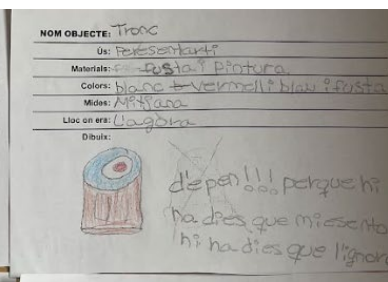 NOM OBJECTE: Tronc
Ús: Peresentarti
Materials: fusta i Pintura
Colors: blanc vermell i blau i fusta
Mides: Mitjana
Lloc on era: L'agòra
Dibuix:
d'epen!!! perque hi
ha dies que miesento
hi ha dies que l'ignor